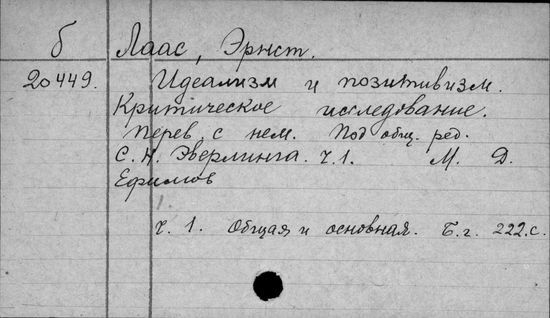 б Лаас, Эрнст.
20449. Идеализм и позитивизм.
Критическое исследование.
Перев. с нем. Под общ. ред.
С. Н. Эверлинга. ч. 1. М. Д.
Ефимов
1.
ч. 1. Общая и основная. Б. г. 222 с.